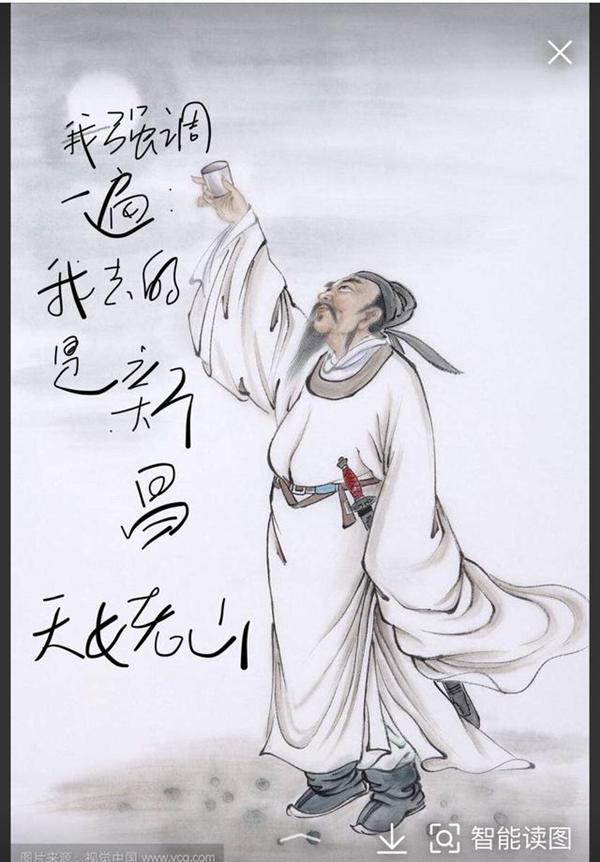 我强调
一遍：
我去的
是新
昌
天姥山
图片来源：视觉中国 www.vcg.com
智能读图